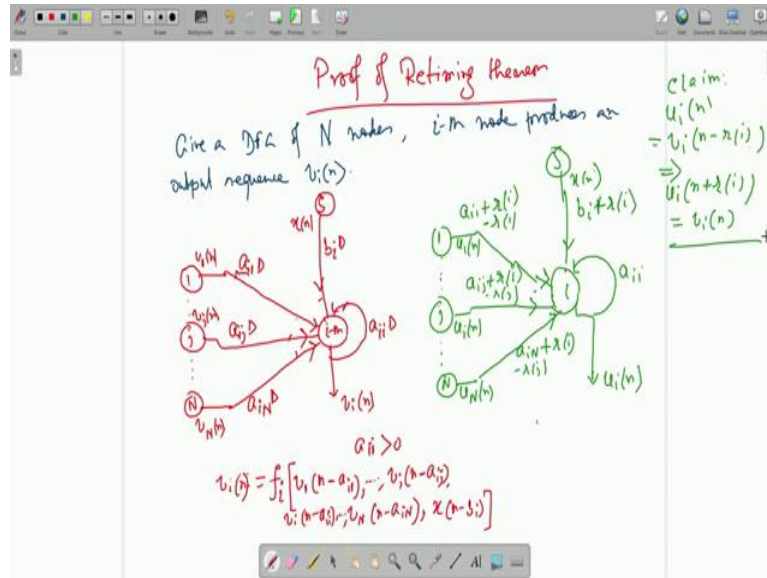 Proof of Retiming theorem
Give a DFG of N nodes, i-th node produces an
output sequence v_i(n).
S
x(n)
b_i D
1
v_1(n)
a_i1 D
j
v_j(n)
a_ij D
N
v_N(n)
a_iN D
i-th
a_ii D
v_i(n)
a_ii > 0
v_i(n) = f_i [v_1(n-a_i1), ..., v_j(n-a_ij),
v_i(n-a_ii)..., v_N(n-a_iN), x(n-b_i)]
S
x(n)
b_i + r(i)
1
a_i1 + r(i)
- r(1)
u_1(n)
j
a_ij + r(i)
- r(j)
u_j(n)
N
a_iN + r(i)
- r(j)
u_N(n)
i
a_ii
u_i(n)
Claim:
u_i(n)
= v_i(n-r(i))
=>
u_i(n+r(i))
= v_i(n)